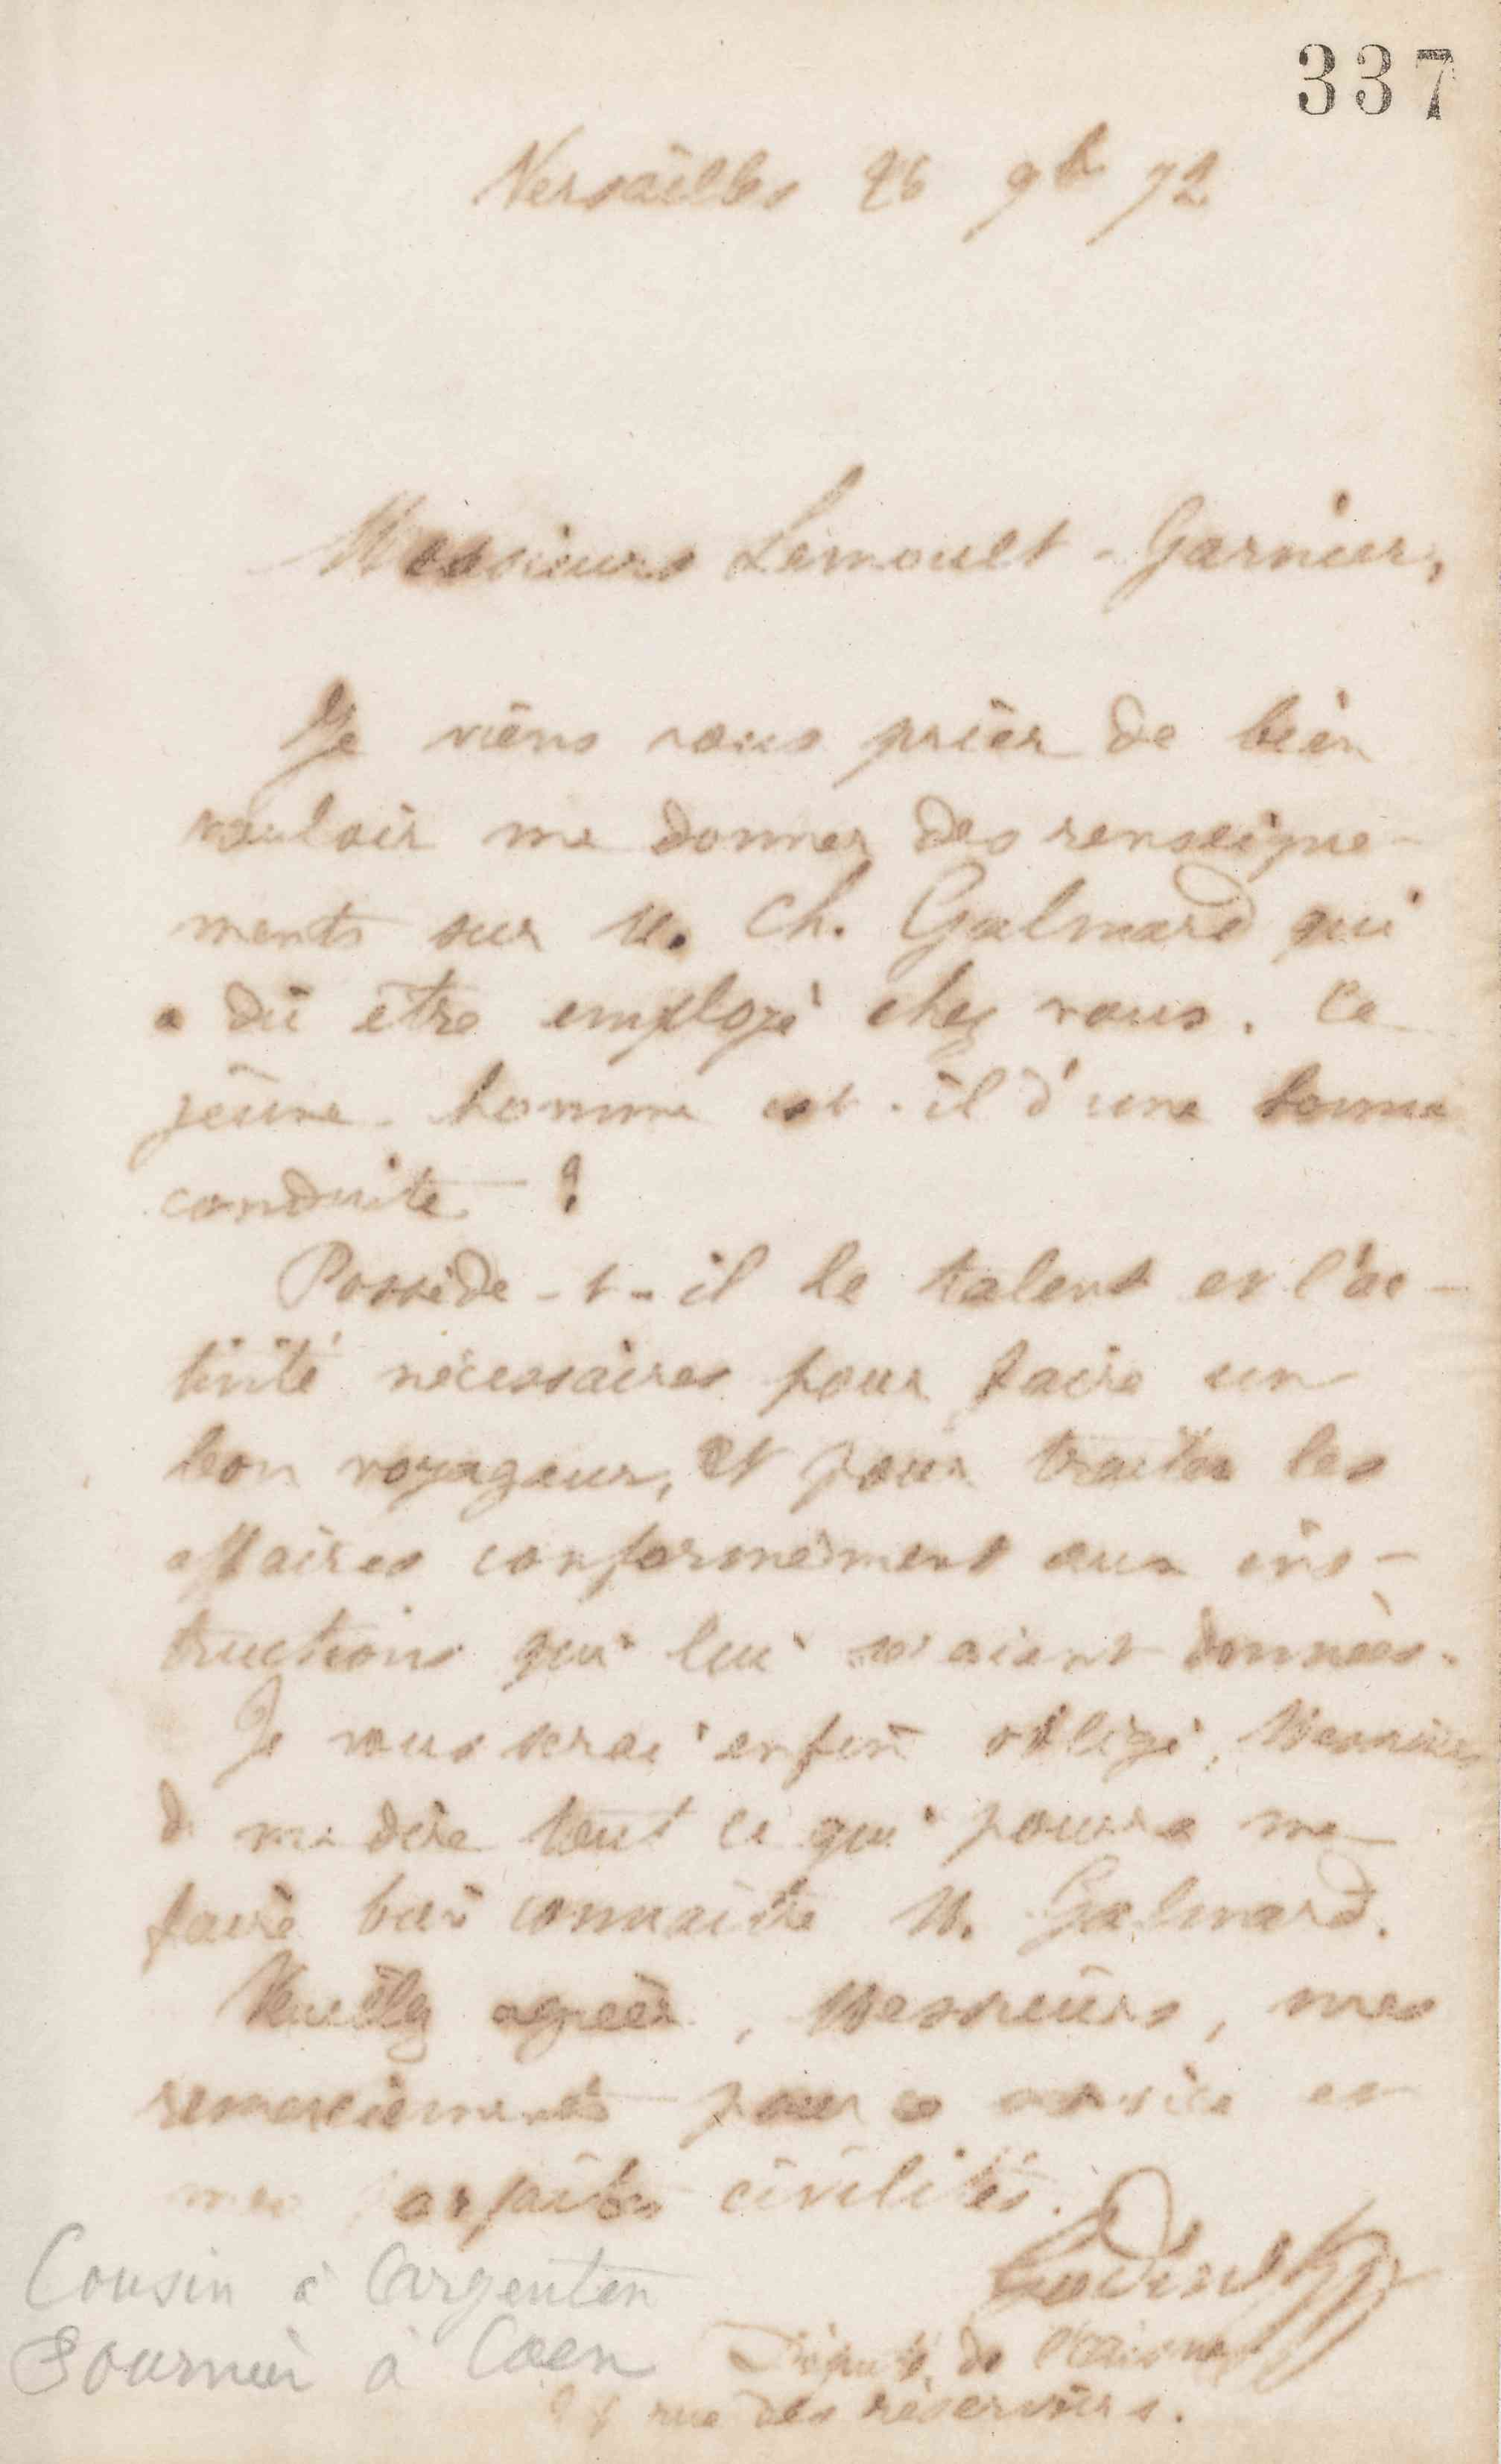 337
Versailles 26 9bre 72
Messieurs Lemoult-Garnier,
Je viens vous prier de bien
vouloir me donner des renseigne-
ments sur M. Ch. Galmard qui
a dû être employé chez vous. Ce
jeune homme est-il d'une bonne
conduite ?
Possède-t-il le talent et l'ac-
tivité nécessaires pour faire un
bon voyageur, et pour traiter les
affaires conformément aux ins-
tructions qui lui seraient données.
Je vous serai enfin obligé, Messieurs
de me dire tout ce qui pourra me
faire bien connaître M. Galmard.
Veuillez agréer, Messieurs, mes
remerciements pour ce service et
mes parfaites civilités.
Godin
Député de l'Aisne
rue des réservoirs.
Cousin à Argentan
Fournier à Caen